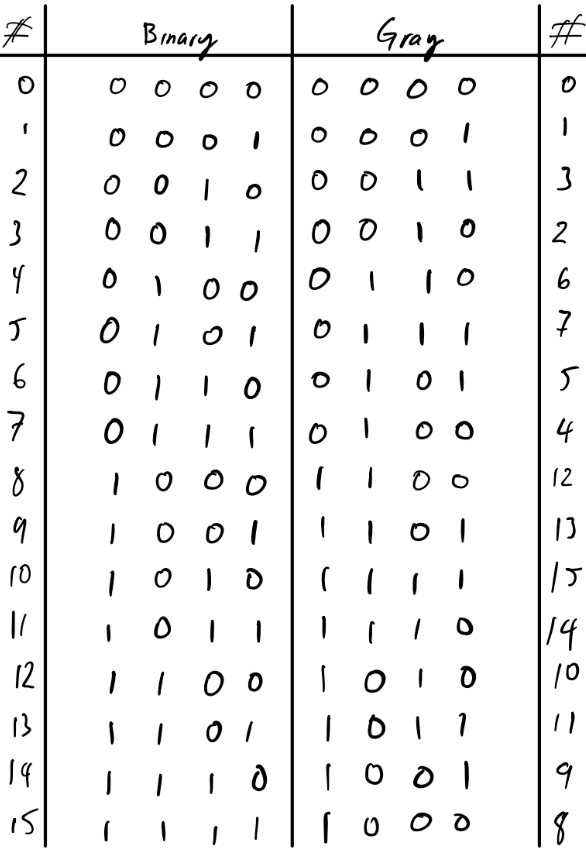 # Binary Gray #
0 0 0 0 0 0 0 0 0 0
1 0 0 0 1 0 0 0 1 1
2 0 0 1 0 0 0 1 1 3
3 0 0 1 1 0 0 1 0 2
4 0 1 0 0 0 1 1 0 6
5 0 1 0 1 0 1 1 1 7
6 0 1 1 0 0 1 0 1 5
7 0 1 1 1 0 1 0 0 4
8 1 0 0 0 1 1 0 0 12
9 1 0 0 1 1 1 0 1 13
10 1 0 1 0 1 1 1 1 15
11 1 0 1 1 1 1 1 0 14
12 1 1 0 0 1 0 1 0 10
13 1 1 0 1 1 0 1 1 11
14 1 1 1 0 1 0 0 1 9
15 1 1 1 1 1 0 0 0 8